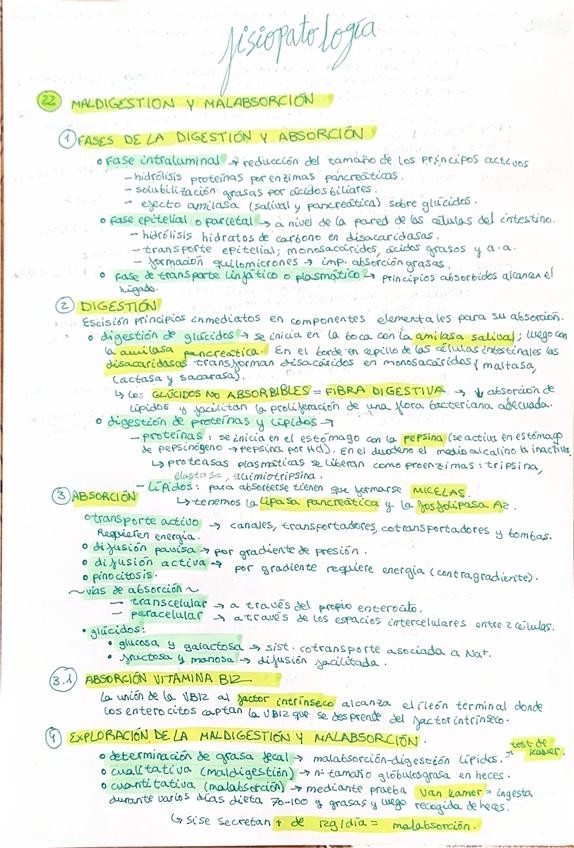 fisiopatología
22 MALDIGESTION Y MALABSORCIÓN
1 FASES DE LA DIGESTIÓN Y ABSORCIÓN
• Fase intraluminal → reducción del tamaño de los principos activos
- hidrólisis proteínas por enzimas pancreáticas.
- solubilización grasas por ácidos biliares.
- efecto amilasa (salival y pancreática) sobre glúcidos.
• Fase epitelial o parietal → a nivel de la pared de las células del intestino.
- hidrólisis hidratos de carbono en disacaridasas.
- transporte epitelial; monosacáridos, ácidos grasos y a.a.
- formación quilomicrones → imp. absorción grasas.
• Fase de transporte linfático o plasmático → principios absorbidos alcanzan el
hígado.
2 DIGESTIÓN
Escisión principios inmediatos en componentes elementales para su absorción.
• digestión de glúcidos → se inicia en la boca con la amilasa salival; luego con
la amilasa pancreática. En el borde en cepillo de las células intestinales las
disacaridasas transforman disacáridos en monosacáridos (maltasa,
lactasa y sacarasa).
↳ los GLÚCIDOS NO ABSORBIBLES = FIBRA DIGESTIVA → ↓ absorción de
lípidos y facilitan la proliferación de una flora bacteriana adecuada.
• digestión de proteínas y lípidos →
- proteínas: se inicia en el estómago con la pepsina (se activa en estómago
de pepsinógeno → pepsina por HCl). En el duodeno el medio alcalino la inactiva.
↳ proteasas plasmáticas se liberan como proenzimas: tripsina,
elastasa, quimiotripsina.
- LÍPIDOS: para absorberse tienen que formarse MICELAS.
↳ tenemos la lipasa pancreática y la fosfolipasa A2
3 ABSORCIÓN
• transporte activo → canales, transportadores, cotransportadores y bombas.
Requieren energía.
• difusión pasiva → por gradiente de presión.
• difusión activa → por gradiente requiere energía (contragradiente).
• pinocitosis.
~ vías de absorción ~
- transcelular → a través del propio enterocito.
- paracelular → a través de los espacios intercelulares entre 2 células.
• glúcidos:
• glucosa y galactosa → sist. cotransporte asociada a Na+.
• fructosa y manosa → difusión facilitada.
3.1 ABSORCIÓN VITAMINA B12
la unión de la VB12 al factor intrínseco alcanza el íleon terminal donde
los enterocitos captan la VB12 que se desprende del factor intrínseco.
4 EXPLORACIÓN DE LA MALDIGESTIÓN Y MALABSORCIÓN.
• determinación de grasa fecal → malabsorción-digestión lípidos. → test de kamer.
• cualitativa (maldigestión) → nº tamaño glóbulos grasa en heces.
• cuantitativa (malabsorción) → mediante prueba Van Kamer = ingesta
durante varios días dieta 70-100 g grasas y luego recogida de heces.
↳ si se secretan + de 12g/día = malabsorción.